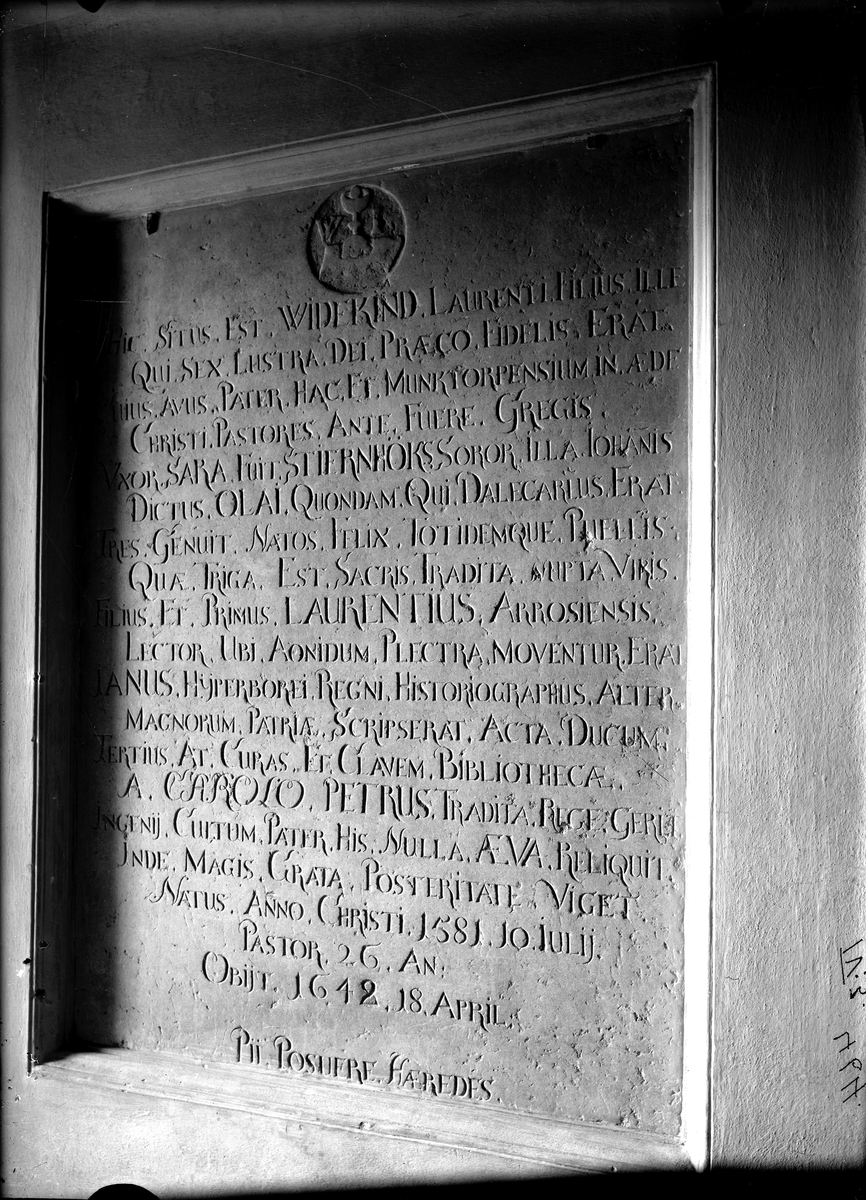 Hic. Situs. Est. WIDEKIND. Laurenti. Filius. Ille
Qui. Sex. Lustra. Dei. Præco. Fidelis. Erat.
Avus. Pater. Hac. Et. Munktorpensium in. Æde
Christi. Pastores. Ante. Fuere. Gregis.
Uxor. SARA. Fuit. STIERNHÖKS. Soror. Illa. Iohanis
Dictus. OLAI. Quondam. Qui. Dalecarlus. Erat.
Tres. Genuit. Natos. Felix. Totidemque. Puellis.
Quæ. Triga. Est. Sacris. Tradita. nupta. Viris.
Filius. Et. Primus. LAURENTIUS. Arrosiensis.
Lector. Ubi. Aonidum. Plectra. moventur. Erat
IANUS. Hyperborei. Regni. Historiographus. Alter.
magnorum. Patriæ. Scripserat. Acta. Ducum.
Tertius. At. Curas. Et. Clavem. Bibliothecæ.
A. CAROLO. PETRUS. Tradita. Rege. Gerit
Ingenij. Cultum. Pater. His. Nulla. Æva. Reliquit.
Inde. Magis. Grata. Posteritate. Viget
Natus. Anno. Christi. 1581. 10. Iulij.
Pastor. 26. An.
Obijt. 1642. 18. April.
Pii. Posuere. Hæredes.